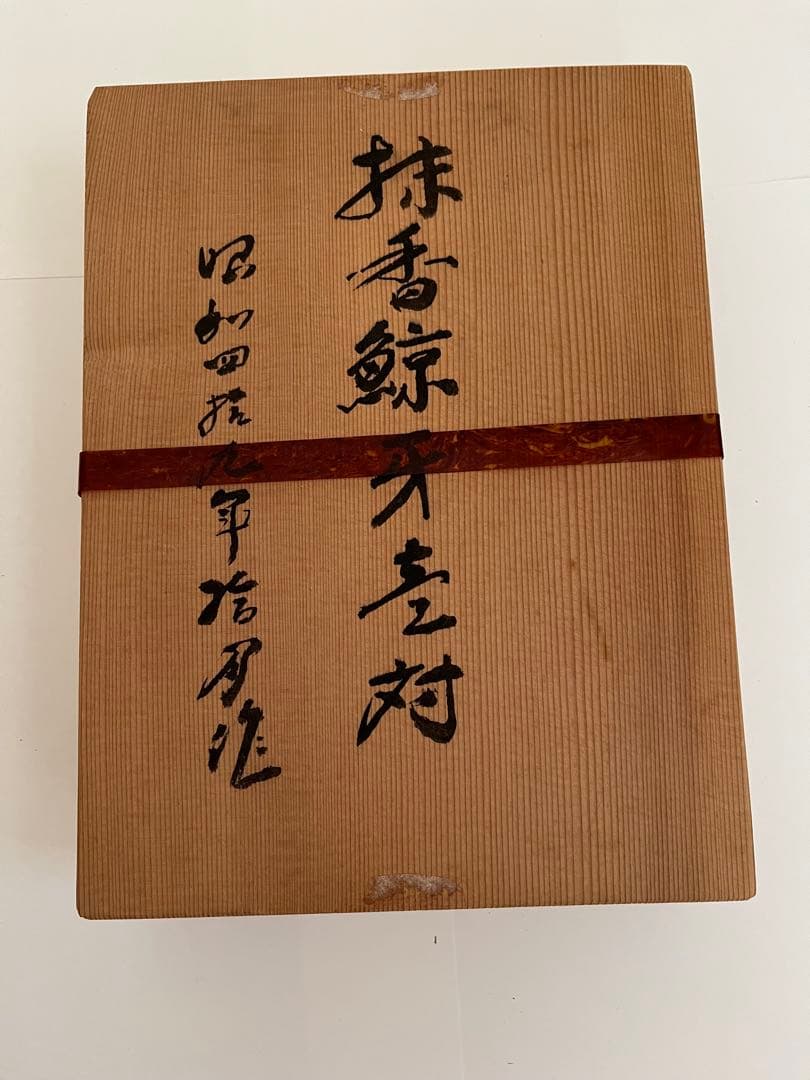 抹香鯨牙壱対
昭和四拾九年拾月作